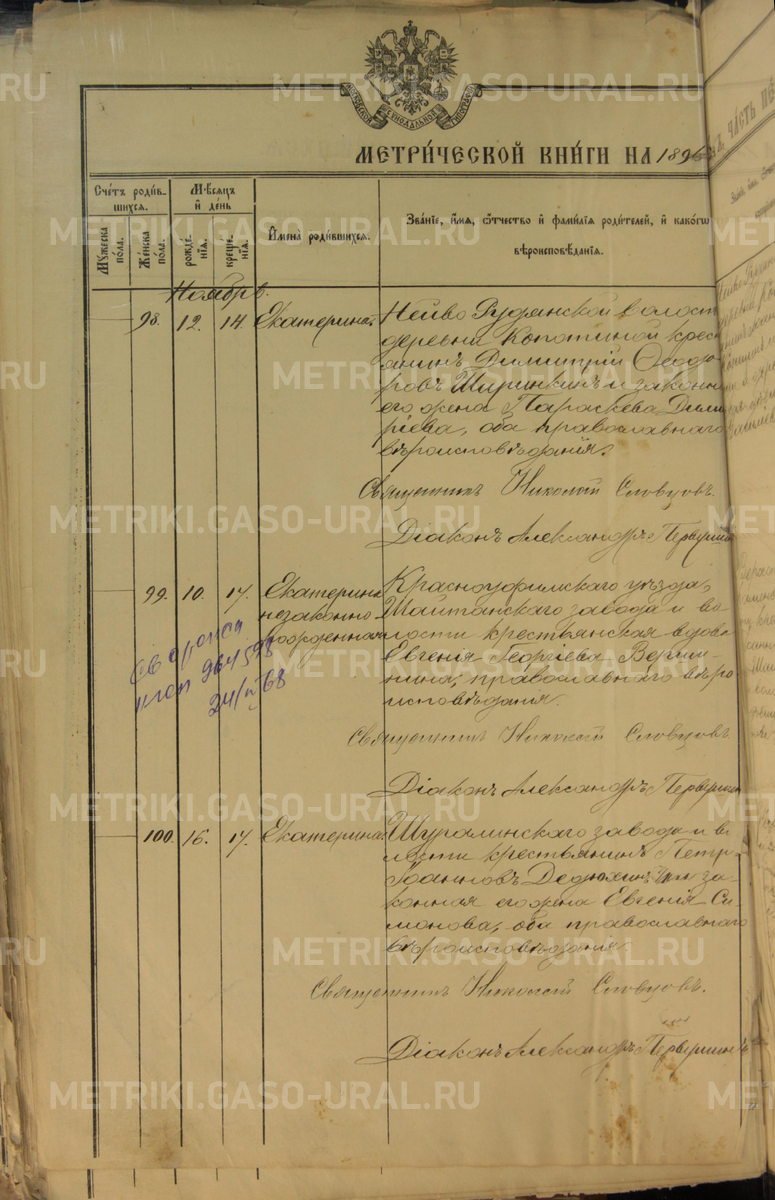 МЕТРИ́ЧЕСКОЙ КНИ́ГИ НА 1896
Сче́тъ роди́в-
шихся.
Мꙋ́жеска
по́ла.
Же́нска
по́ла.
Мѣ́сяцъ
и҆ де́нь
рожде́-
нїя.
креще́-
нїя.
И҆мена̀ роди́вшихся.
Зва́нїе, и҆́мя, ѻ҆́тчество и҆ фами́лїя роди́телей, и҆ како́гѡ
вѣроисповѣ́данїя.
Ноябрь.
98. 12. 14. Екатерина.
Нейво Рудянской волост
деревни Копотиной крес
янинъ Димитрій Ѳеодо-
ровъ Ширинкинъ и законн
его жена Параскева Дими
ріева, оба православнаго
вѣроисповѣданія.
Священникъ Николай Словцовъ.
Діаконъ Александръ
99. 10. 17. Екатерина
незаконно-
рожденная
Красноуфимскаго уѣзда,
Шайтанскаго завода и во-
лости крестьянская вдова
Евгенія Георгіева Верши-
нина, православнаго вѣро
исповѣданія.
24/ 68
Священникъ Николай Словцовъ.
Діаконъ Александръ
100. 16. 17. Екатерина.
Шуралинскаго завода и во
лости крестьянинъ Петръ
Іоанновъ Дедюхинъ и за-
конная его жена Евгенія Си-
монова, оба православнаго
вѣроисповѣданія.
Священникъ Николай Словцовъ.
Діаконъ Александръ
METRIKI.GASO-URAL.RU